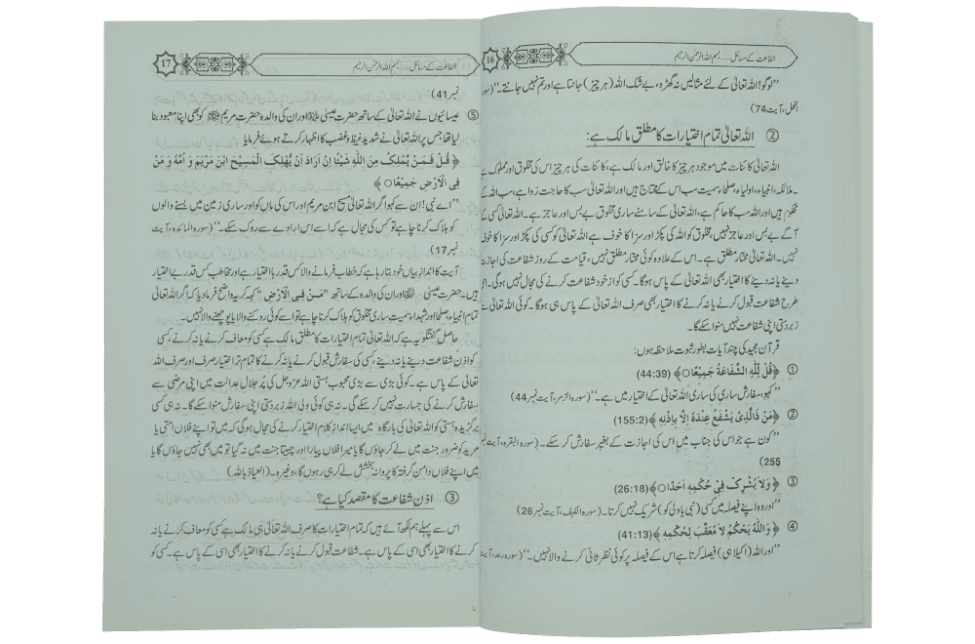 شفاعت کے مسائل ..... بسم اللہ الرحمٰن الرحیم
16
’’لوگو! اللہ تعالیٰ کے لئے مثالیں نہ گھڑو، بے شک اللہ (ہر چیز) جانتا ہے اور تم نہیں جانتے۔‘‘ (سورہ
النحل، آیت 74)
② اللہ تعالیٰ تمام اختیارات کا مطلق مالک ہے:
اللہ تعالیٰ کائنات میں موجود ہر چیز کا خالق اور مالک ہے، کائنات کی ہر چیز اس کی مخلوق اور مملوک ہے
۔ ملائکہ، انبیاء، اولیاء، صلحاء سمیت سب اس کے محتاج ہیں اور اللہ تعالیٰ سب کا حاجت روا ہے، سب اللہ کے
محکوم ہیں اور اللہ سب کا حاکم ہے، اللہ تعالیٰ کے سامنے ساری مخلوق بے بس اور عاجز ہے۔ اللہ تعالیٰ کسی کے
آگے بے بس اور عاجز نہیں، مخلوق کو اللہ کی پکڑ اور سزا کا خوف ہے اللہ تعالیٰ کو کسی کی پکڑ اور سزا کا خوف
نہیں۔ اللہ تعالیٰ مختار مطلق ہے۔ اس کے علاوہ کوئی مختار مطلق نہیں، قیامت کے روز شفاعت کی اجازت
دینے یا نہ دینے کا اختیار بھی اللہ تعالیٰ کے پاس ہوگا۔ کسی کو از خود شفاعت کرنے کی مجال نہیں ہوگی۔ اسی
طرح شفاعت قبول کرنے یا نہ کرنے کا اختیار بھی صرف اللہ تعالیٰ کے پاس ہی ہوگا۔ کوئی اللہ تعالیٰ سے
زبردستی اپنی شفاعت نہیں منوا سکے گا۔
قرآن مجید کی چند آیات بطور ثبوت ملاحظہ ہوں:
① ﴿ قُلْ لِّلّٰهِ الشَّفَاعَةُ جَمِيْعًا○﴾ (44:39)
’’کہو، سفارش ساری کی ساری اللہ تعالیٰ کے اختیار میں ہے۔‘‘ (سورہ الزمر، آیت نمبر 44)
② ﴿ مَنْ ذَالَّذِیْ يَشْفَعُ عِنْدَهٗ اِلَّا بِاِذْنِهٖ ﴾ (155:2)
’’کون ہے جو اس کی جناب میں اس کی اجازت کے بغیر سفارش کر سکے۔ (سورہ البقرہ، آیت نمبر
255)
③ ﴿ وَلَا يُشْرِكُ فِىْ حُكْمِهٖ اَحَدًا○﴾ (26:18)
’’اور وہ اپنے فیصلہ میں کسی (نبی یا ولی کو) شریک نہیں کرتا۔ (سورہ الکہف، آیت نمبر 26)
④ ﴿ وَاللّٰهُ يَحْكُمُ لَا مُعَقِّبَ لِحُكْمِهٖ ﴾ (41:13)
’’اور اللہ (اکیلا ہی) فیصلہ کرتا ہے اس کے فیصلہ پر کوئی نظر ثانی کرنے والا نہیں۔‘‘ (سورہ رعد، آیت
شفاعت کے مسائل ..... بسم اللہ الرحمٰن الرحیم
17
نمبر 41)
⑤ عیسائیوں نے اللہ تعالیٰ کے ساتھ حضرت عیسیٰ علیہ السلام اور ان کی والدہ حضرت مریم علیہا السلام کو بھی اپنا معبود بنا
لیا تھا جس پر اللہ تعالیٰ نے شدید غیظ و غضب کا اظہار کرتے ہوئے فرمایا
﴿ قُلْ فَمَنْ يَّمْلِكُ مِنَ اللّٰهِ شَيْئًا اِنْ اَرَادَ اَنْ يُّهْلِكَ الْمَسِيْحَ ابْنَ مَرْيَمَ وَ اُمَّهٗ وَ مَنْ
فِى الْاَرْضِ جَمِيْعًا○﴾
’’اے نبی! ان سے کہو اگر اللہ تعالیٰ مسیح ابن مریم اور اس کی ماں کو اور ساری زمین میں بسنے والوں
کو ہلاک کرنا چاہے تو کس کی مجال ہے کہ اسے اس ارادے سے روک سکے۔‘‘ (سورہ المائدہ، آیت
نمبر 17)
آیت کا انداز بیاں خود بتا رہا ہے کہ خطاب فرمانے والا کس قدر با اختیار ہے اور مخاطب کس قدر بے اختیار
ہیں۔ حضرت عیسیٰ علیہ السلام اور ان کی والدہ کے ساتھ ’’مَنْ فِى الْاَرْضِ‘‘ کہہ کر یہ واضح فرما دیا کہ اگر اللہ تعالیٰ
تمام انبیاء، صلحا اور شہداء سمیت ساری مخلوق کو ہلاک کرنا چاہے تو اسے کوئی روکنے والا یا پوچھنے والا نہیں۔
حاصل گفتگو یہ ہے کہ اللہ تعالیٰ تمام اختیارات کا مطلق مالک ہے کسی کو معاف کرنے یا نہ کرنے، کسی
کو اذن شفاعت دینے یا نہ دینے کسی کی سفارش قبول کرنے یا نہ کرنے کا تمام تر اختیار صرف اور صرف اللہ
تعالیٰ کے پاس ہے۔ کوئی بڑی سے بڑی محبوب ہستی اللہ عزوجل کی پُر جلال عدالت میں اپنی مرضی سے
سفارش کرنے کی جسارت نہیں کر سکے گی۔ نہ ہی کوئی ولی اللہ زبردستی اپنی سفارش منوا سکے گا۔ نہ ہی کسی
برگزیدہ ہستی کو اللہ تعالیٰ کی بارگاہ میں ایسا انداز کلام اختیار کرنے کی مجال ہوگی کہ میں تو اپنے فلاں امتی یا
مرید کو ضرور جنت میں لے کر جاؤں گا یا میرا فلاں پیارا اور چہیتا جنت میں نہ گیا تو میں بھی نہیں جاؤں گا یا
میں اپنے فلاں دامن گرفتہ کا پروانہ بخشش لے کر ہی رہوں گا، وغیرہ۔ (العیاذ باللہ)
③ اذن شفاعت کا مقصد کیا ہے؟
اس سے پہلے ہم لکھ آئے ہیں کہ تمام اختیارات کا صرف اللہ تعالیٰ ہی مالک ہے کسی کو معاف کرنے یا نہ
کرنے کا اختیار بھی اسی کے پاس ہے۔ شفاعت قبول کرنے یا نہ کرنے کا اختیار بھی اسی کے پاس ہے۔ کسی کو